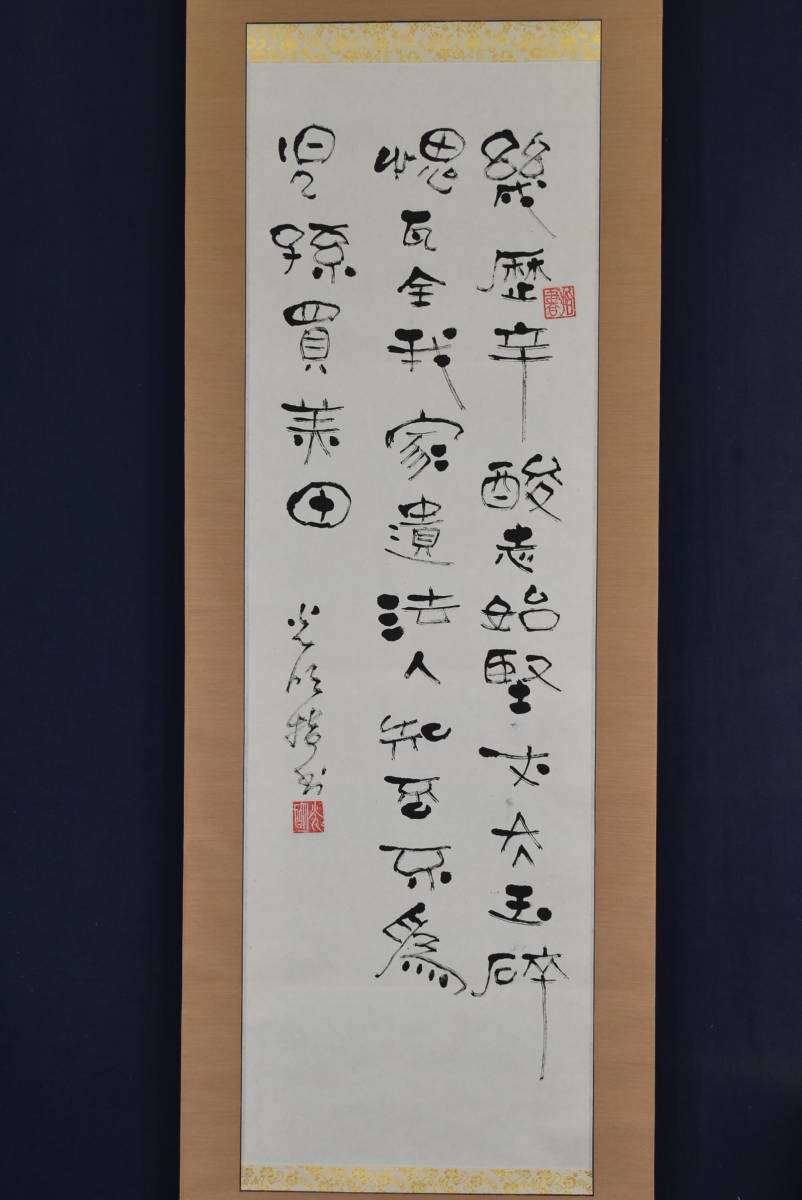 幾歴辛酸志始堅丈夫玉碎
愧瓦全我家遺法人知否不爲
児孫買美田